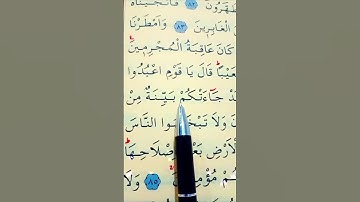 يَتَطَهَّرُونَ ﴿٨٢﴾ فَاَنْجَيْنَاهُ
الْغَابِرِينَ ﴿٨٣﴾ وَاَمْطَرْنَا
كَانَ عَاقِبَةُ الْمُجْرِمِينَ
شُعَيْبًا قَالَ يَا قَوْمِ اعْبُدُوا
قَدْ جَاءَتْكُمْ بَيِّنَةٌ مِنْ
وَلَا تَبْخَسُوا النَّاسَ
الْاَرْضِ بَعْدَ اِصْلَاحِهَا
مُؤْمِنِينَ ﴿٨٥﴾ وَلَا